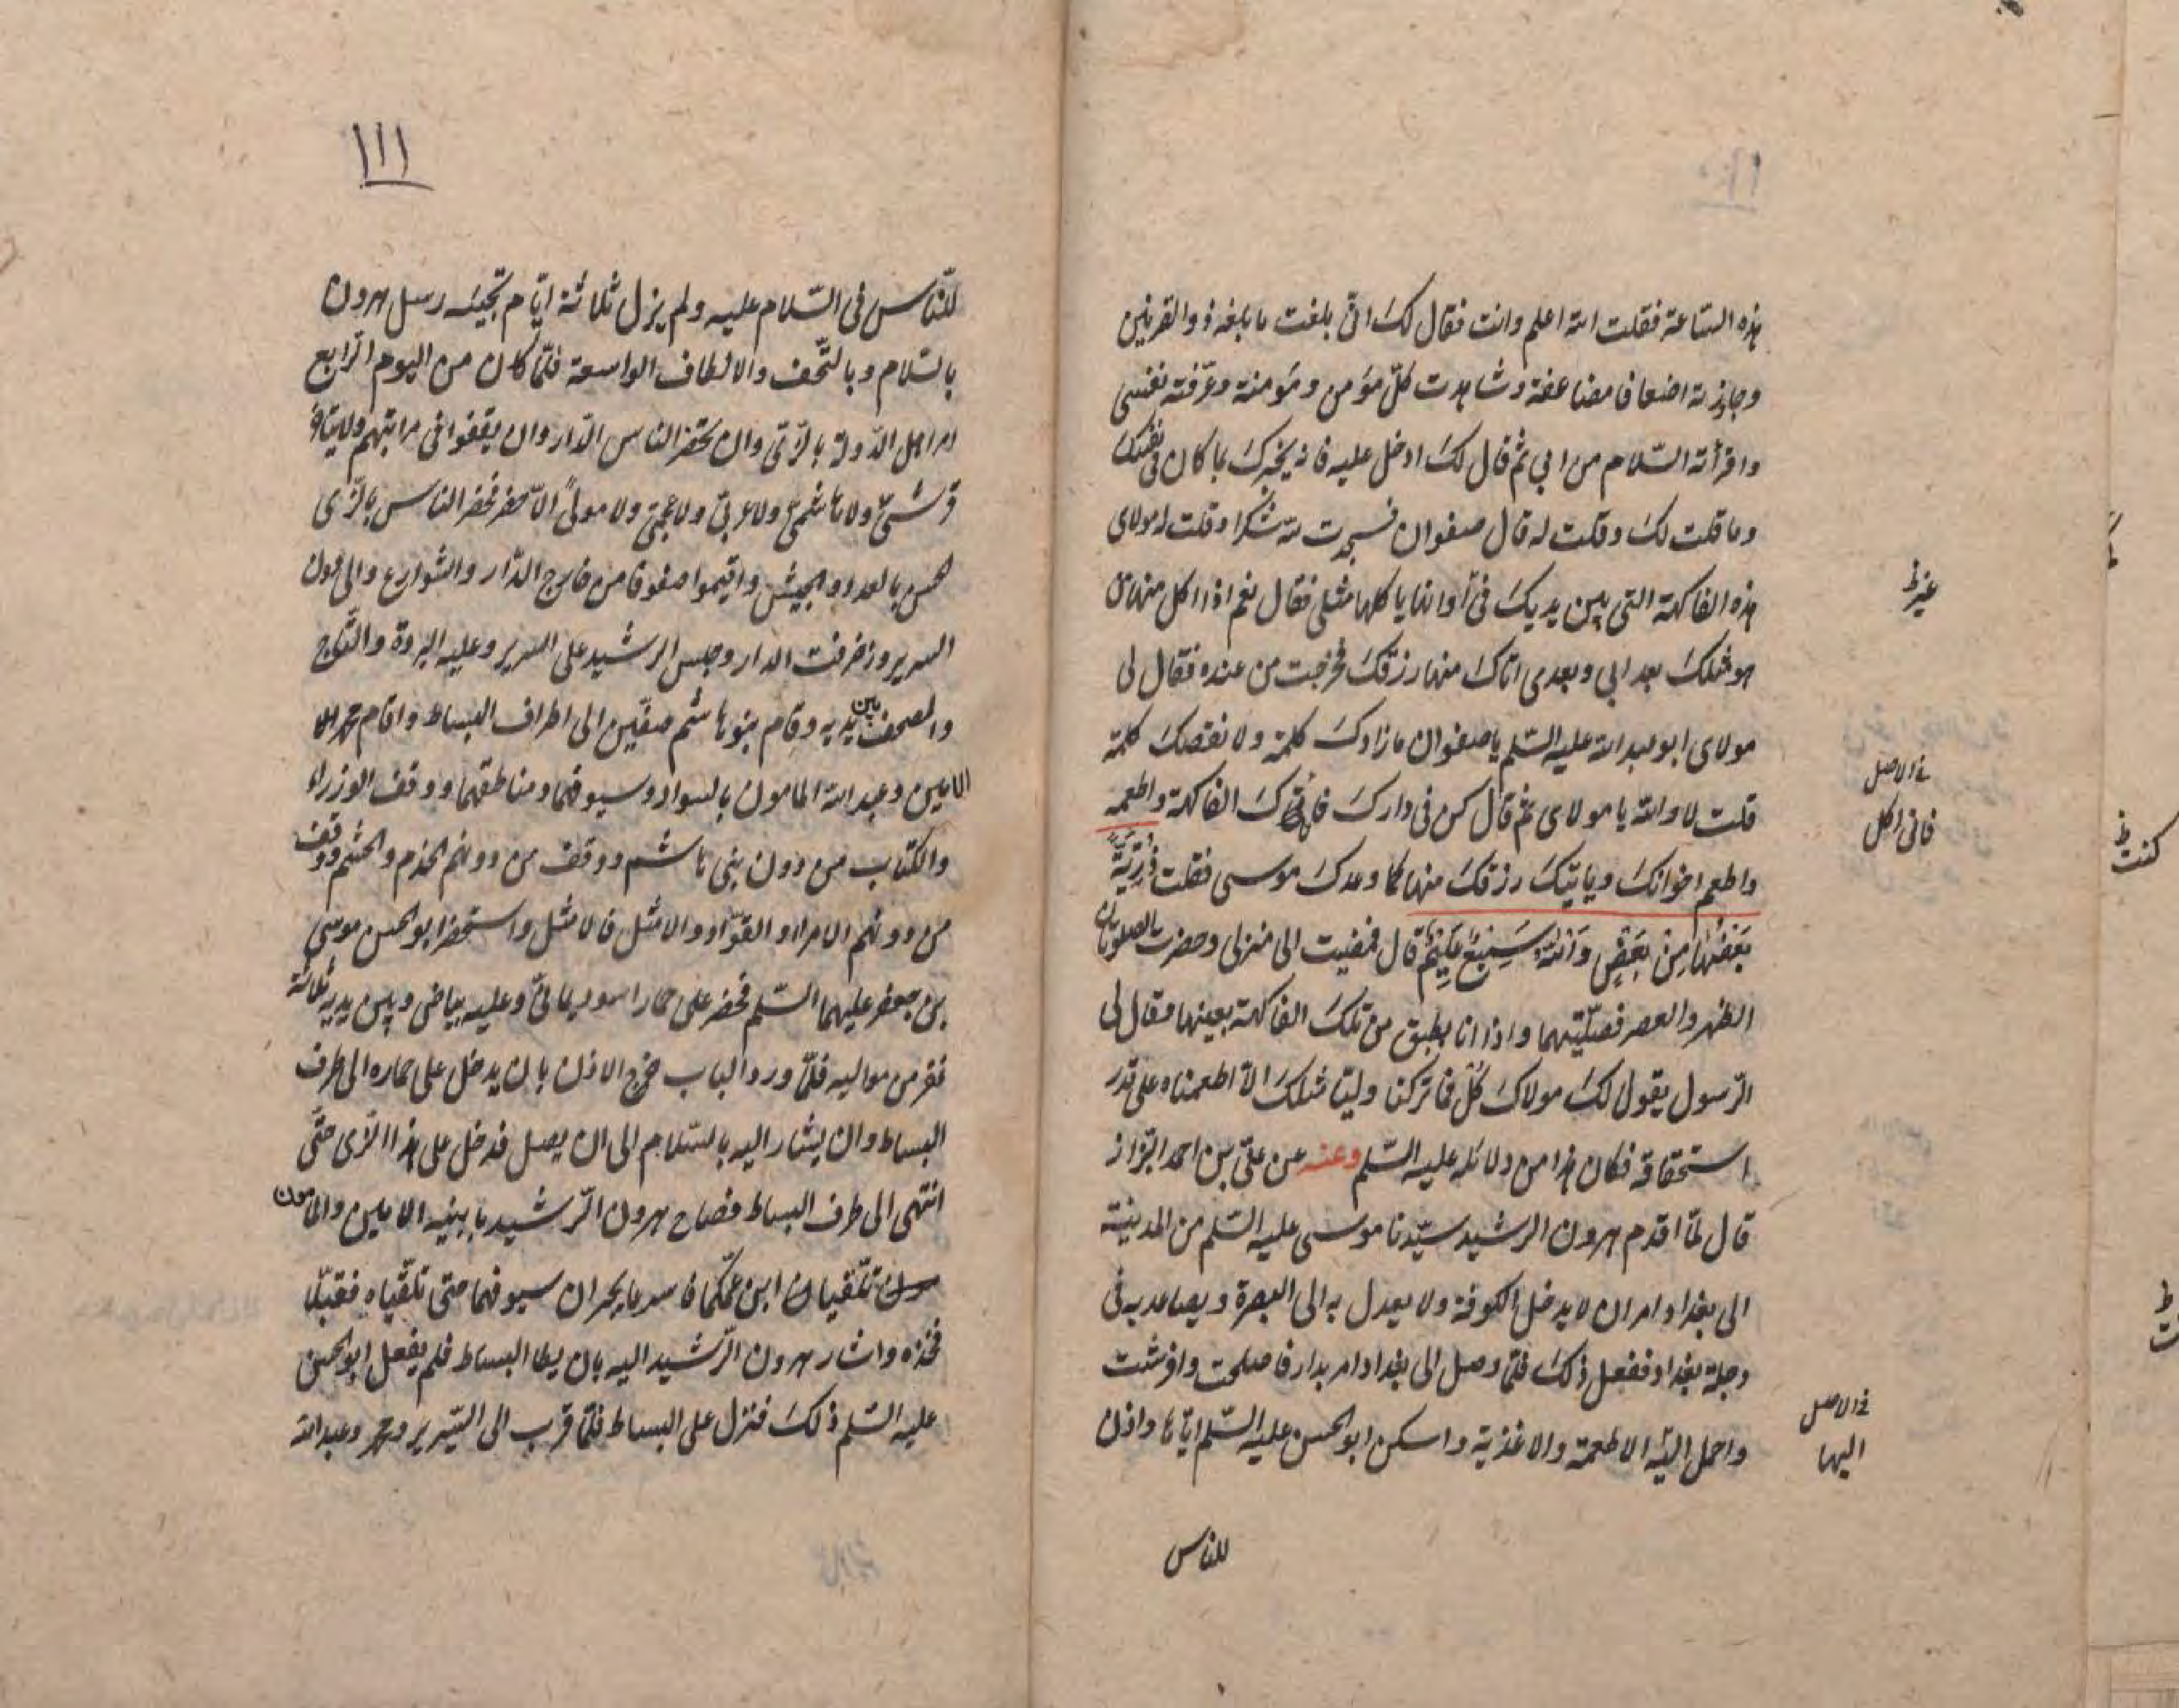 ١١٠
هذه الساعة فقلت الله اعلم وانت فقال لك انّى بلغت ما بلغه ذو القرنين
وجاوزته اضعافا مضاعفة وشاهدت كلّ مؤمن ومؤمنة وعرّفته نفسى
واقرأته السّلام من ابي ثم قال لك ادخل عليه فانه يخبرك بما كان فى نفسك
وما قلت لك وقلت له قال صفوان فسجدت لله شكرا وقلت له مولاى
هذه الفاكهة التى بين يديك فى أوانها ياكلها مثلى فقال نعم اذا اكل منها من
هو مثلك بعد ابي وبعدى اتاك منها رزقك فخرجت من عنده فقال لى
مولاى ابو عبد الله عليه السّلم يا صفوان ما زادك كلمة ولا نقصك كلمة
قلت لا والله يا مولاى ثم قال كن فى دارك فانى اكل الفاكهة واطعمه
واطعم اخوانك وياتيك رزقك منها كما وعدك موسى فقلت ذُرِّيَّةً
بَعْضُهَا مِنْ بَعْضٍ وَاللَّهُ سَمِيعٌ عَلِيمٌ قال فمضيت الى منزلى وحضرت الصلوتان
الظهر والعصر فصلّيتهما واذا انا بطبق من تلك الفاكهة بعينها فقال لى
الرّسول يقول لك مولاك كُل فما تركنا وليّا مثلك الّا اطعمناه على قدر
استحقاقه فكان هذا من دلائله عليه السّلم وعنه عن علىّ بن احمد البزّاز
قال لمّا اقدم هرون الرشيد سيّدنا موسى عليه السّلم من المدينة
الى بغداد امر ان لا يدخل الكوفة ولا يعدل به الى البصرة ويصاعد به فى
دجلة بغداد ففعل ذلك فلمّا وصل الى بغداد امر بدار فاصلحت وافرشت
واحمل اليه الاطعمة والاغذية واسكن ابو الحسن عليه السّلم ايّاها واذن
للناس
فى الاصل
فانى اكل
فى الاصل
اليها
كنت ظ
١١١
للنّاس فى السّلام عليه ولم يزل ثلاثة ايّام تجيئه رسل هرون
بالسّلام وبالتّحف والالطاف الواسعة فلمّا كان من اليوم الرّابع
امر اهل الدّولة بالزّىّ وان يحضر الناس الدّار وان يقفوا فى مراتبهم ولا يبقى
قرشىّ ولا هاشمىّ ولا عربىّ ولا عجمىّ ولا مولىً الّا حضر فحضر الناس بالزّى
الحسن بالعدد والجيش واقيموا صفوفا من خارج الدّار والشوارع والى دون
السرير وزخرفت الدار وجلس الرشيد على السرير وعليه البردة والتّاج
والمصحف بين يديه وقام بنو هاشم صفّين الى اطراف البساط واقام محمد
الامين وعبد الله المامون بالسواد وسيوفهما ومناطقهما ووقف الوزراء
والكتّاب من دون بنى هاشم ووقف من دونهم الخدم والحشم ووقف
من دونهم الامراء والقوّاد والامثل فالامثل واستحضر ابو الحسن موسى
بن جعفر عليهما السّلم فحضر على حمار اسود يمانىّ وعليه بياض وبين يديه ثلاثة
نفر من مواليه فلمّا ورد الباب خرج الاذن بان يدخل على حماره الى طرف
البساط وان يشار اليه بالسّلام الى ان يصل فدخل على هذا الزّى حتّى
انتهى الى طرف البساط فصاح هرون الرّشيد بابنيه الامين والمامون
تلقيان ابن عمّكما فاسرعا يجران سيوفهما حتى تلقّياه فقبّلا
فخذه واشار هرون الرّشيد اليه بان يطا البساط فلم يفعل ابو الحسن
عليه السّلم ذلك فنزل على البساط فلمّا قرب الى السّرير ومحمد وعبد الله